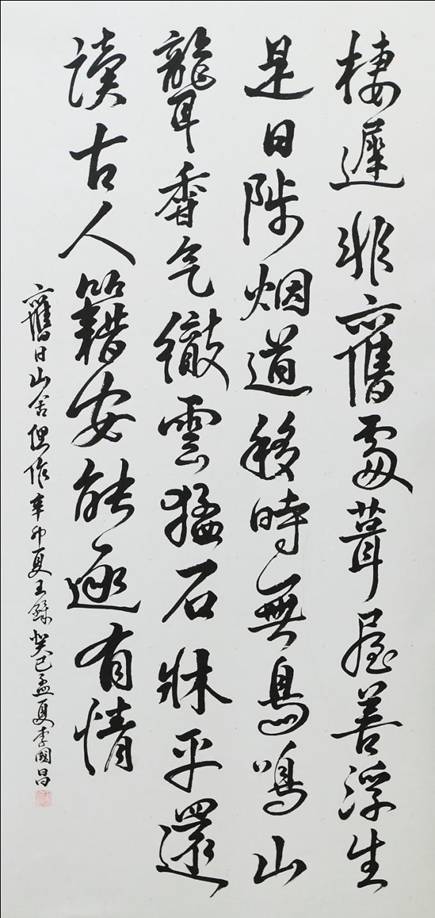 棲遲非舊處葺屋善浮生
是日陟烟道移時無鳥鳴山
聾香气徹雲猛石牀平還
讀古人籍安能逐有情
舊日山舍偶作辛卯夏王癸巳孟夏李國昌